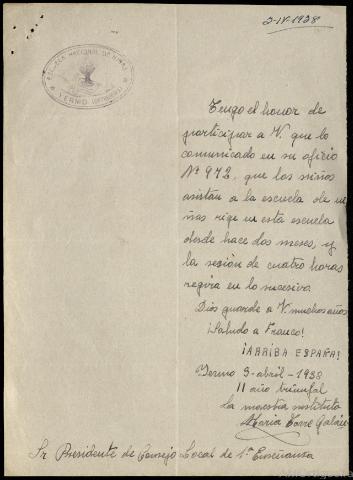 3-IV-1938
ESCUELA NACIONAL DE NIÑAS
YERMO (SANTANDER)
Tengo el honor de
participar a V. que lo
comunicado en su oficio
Nº 972, que los niños
asistan a la escuela de ni
ñas rige en esta escuela
desde hace dos meses, y
la sesión de cuatro horas
regira en lo sucesivo.
Dios guarde a V. muchos años
¡Saludo a Franco!
¡ARRIBA ESPAÑA!
Yermo 3-abril-1938
II año triunfal
La maestra sustituta
María Torre
Sr Presidente de Consejo Local de 1ª Enseñanza